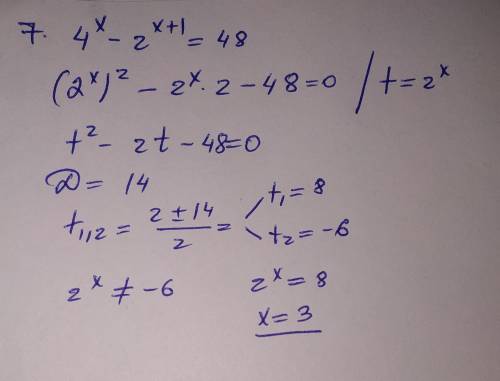 7. 4^x - 2^{x+1} = 48
(2^x)^2 - 2^x · 2 - 48 = 0 / t = 2^x
t^2 - 2t - 48 = 0
D = 14
t_{1,2} = \frac{2 ± 14}{2} = t_1 = 8
t_2 = -6
2^x ≠ -6 2^x = 8
x = 3